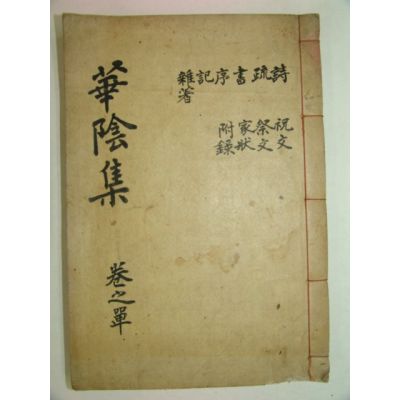 華陰集
卷之單
詩 疏 書 序 記 雜著
祝文 祭文 家狀 附錄